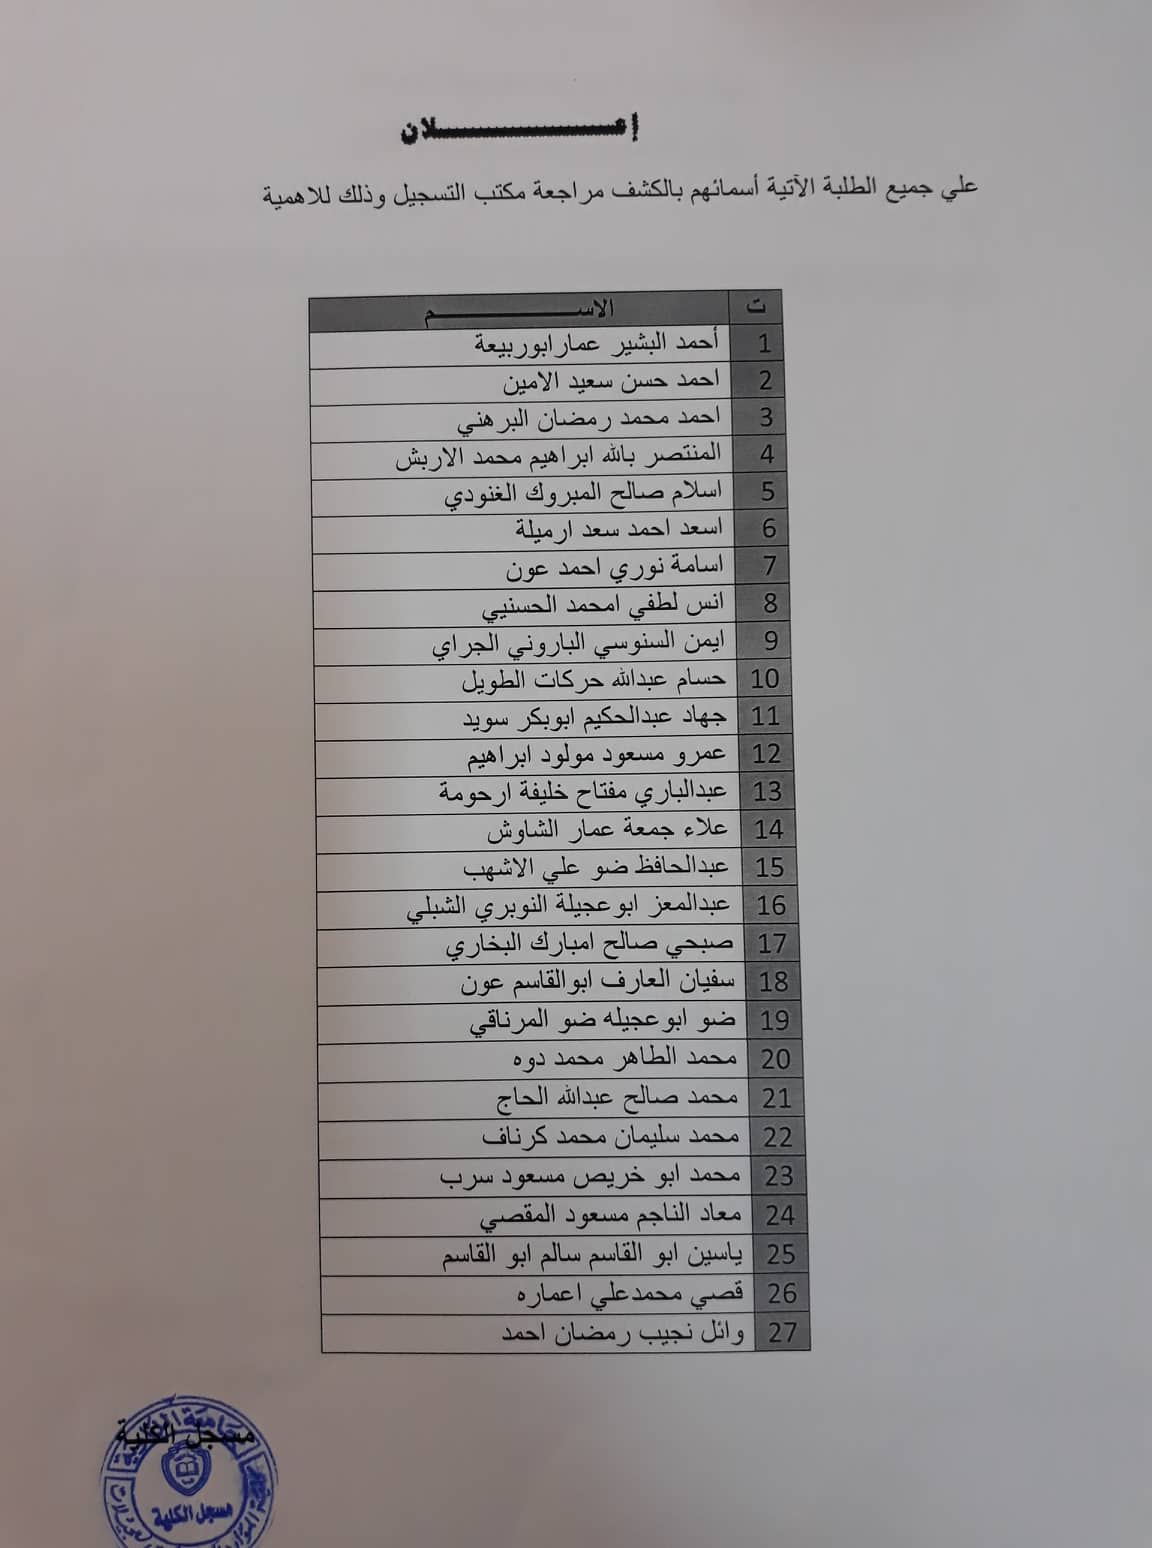 إعـــــــــلان
علي جميع الطلبة الآتية أسمائهم بالكشف مراجعة مكتب التسجيل وذلك للاهمية
ت الاســـــــــم
1 أحمد البشير عمارابوربيعة
2 احمد حسن سعيد الامين
3 احمد محمد رمضان البرهني
4 المنتصر بالله ابراهيم محمد الاربش
5 اسلام صالح المبروك الغنودي
6 اسعد احمد سعد ارميلة
7 اسامة نوري احمد عون
8 انس لطفي امحمد الحسنيي
9 ايمن السنوسي الباروني الجراي
10 حسام عبدالله حركات الطويل
11 جهاد عبدالحكيم ابوبكر سويد
12 عمرو مسعود مولود ابراهيم
13 عبدالباري مفتاح خليفة ارحومة
14 علاء جمعة عمار الشاوش
15 عبدالحافظ ضو علي الاشهب
16 عبدالمعز ابوعجيلة النوبري الشبلي
17 صبحي صالح امبارك البخاري
18 سفيان العارف ابوالقاسم عون
19 ضو ابوعجيله ضو المرناقي
20 محمد الطاهر محمد دوه
21 محمد صالح عبدالله الحاج
22 محمد سليمان محمد كرناف
23 محمد ابو خريص مسعود سرب
24 معاد الناجم مسعود المقصي
25 ياسين ابو القاسم سالم ابو القاسم
26 قصي محمدعلي اعماره
27 وائل نجيب رمضان احمد
مسجل الكلية
جامعة
مسجل الكلية